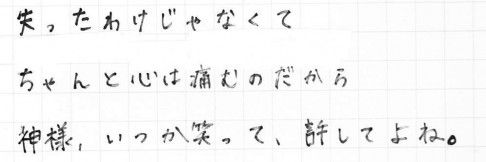 失ったわけじゃなくて
ちゃんと心は痛むのだから
神様, いつか笑って、許してよね。